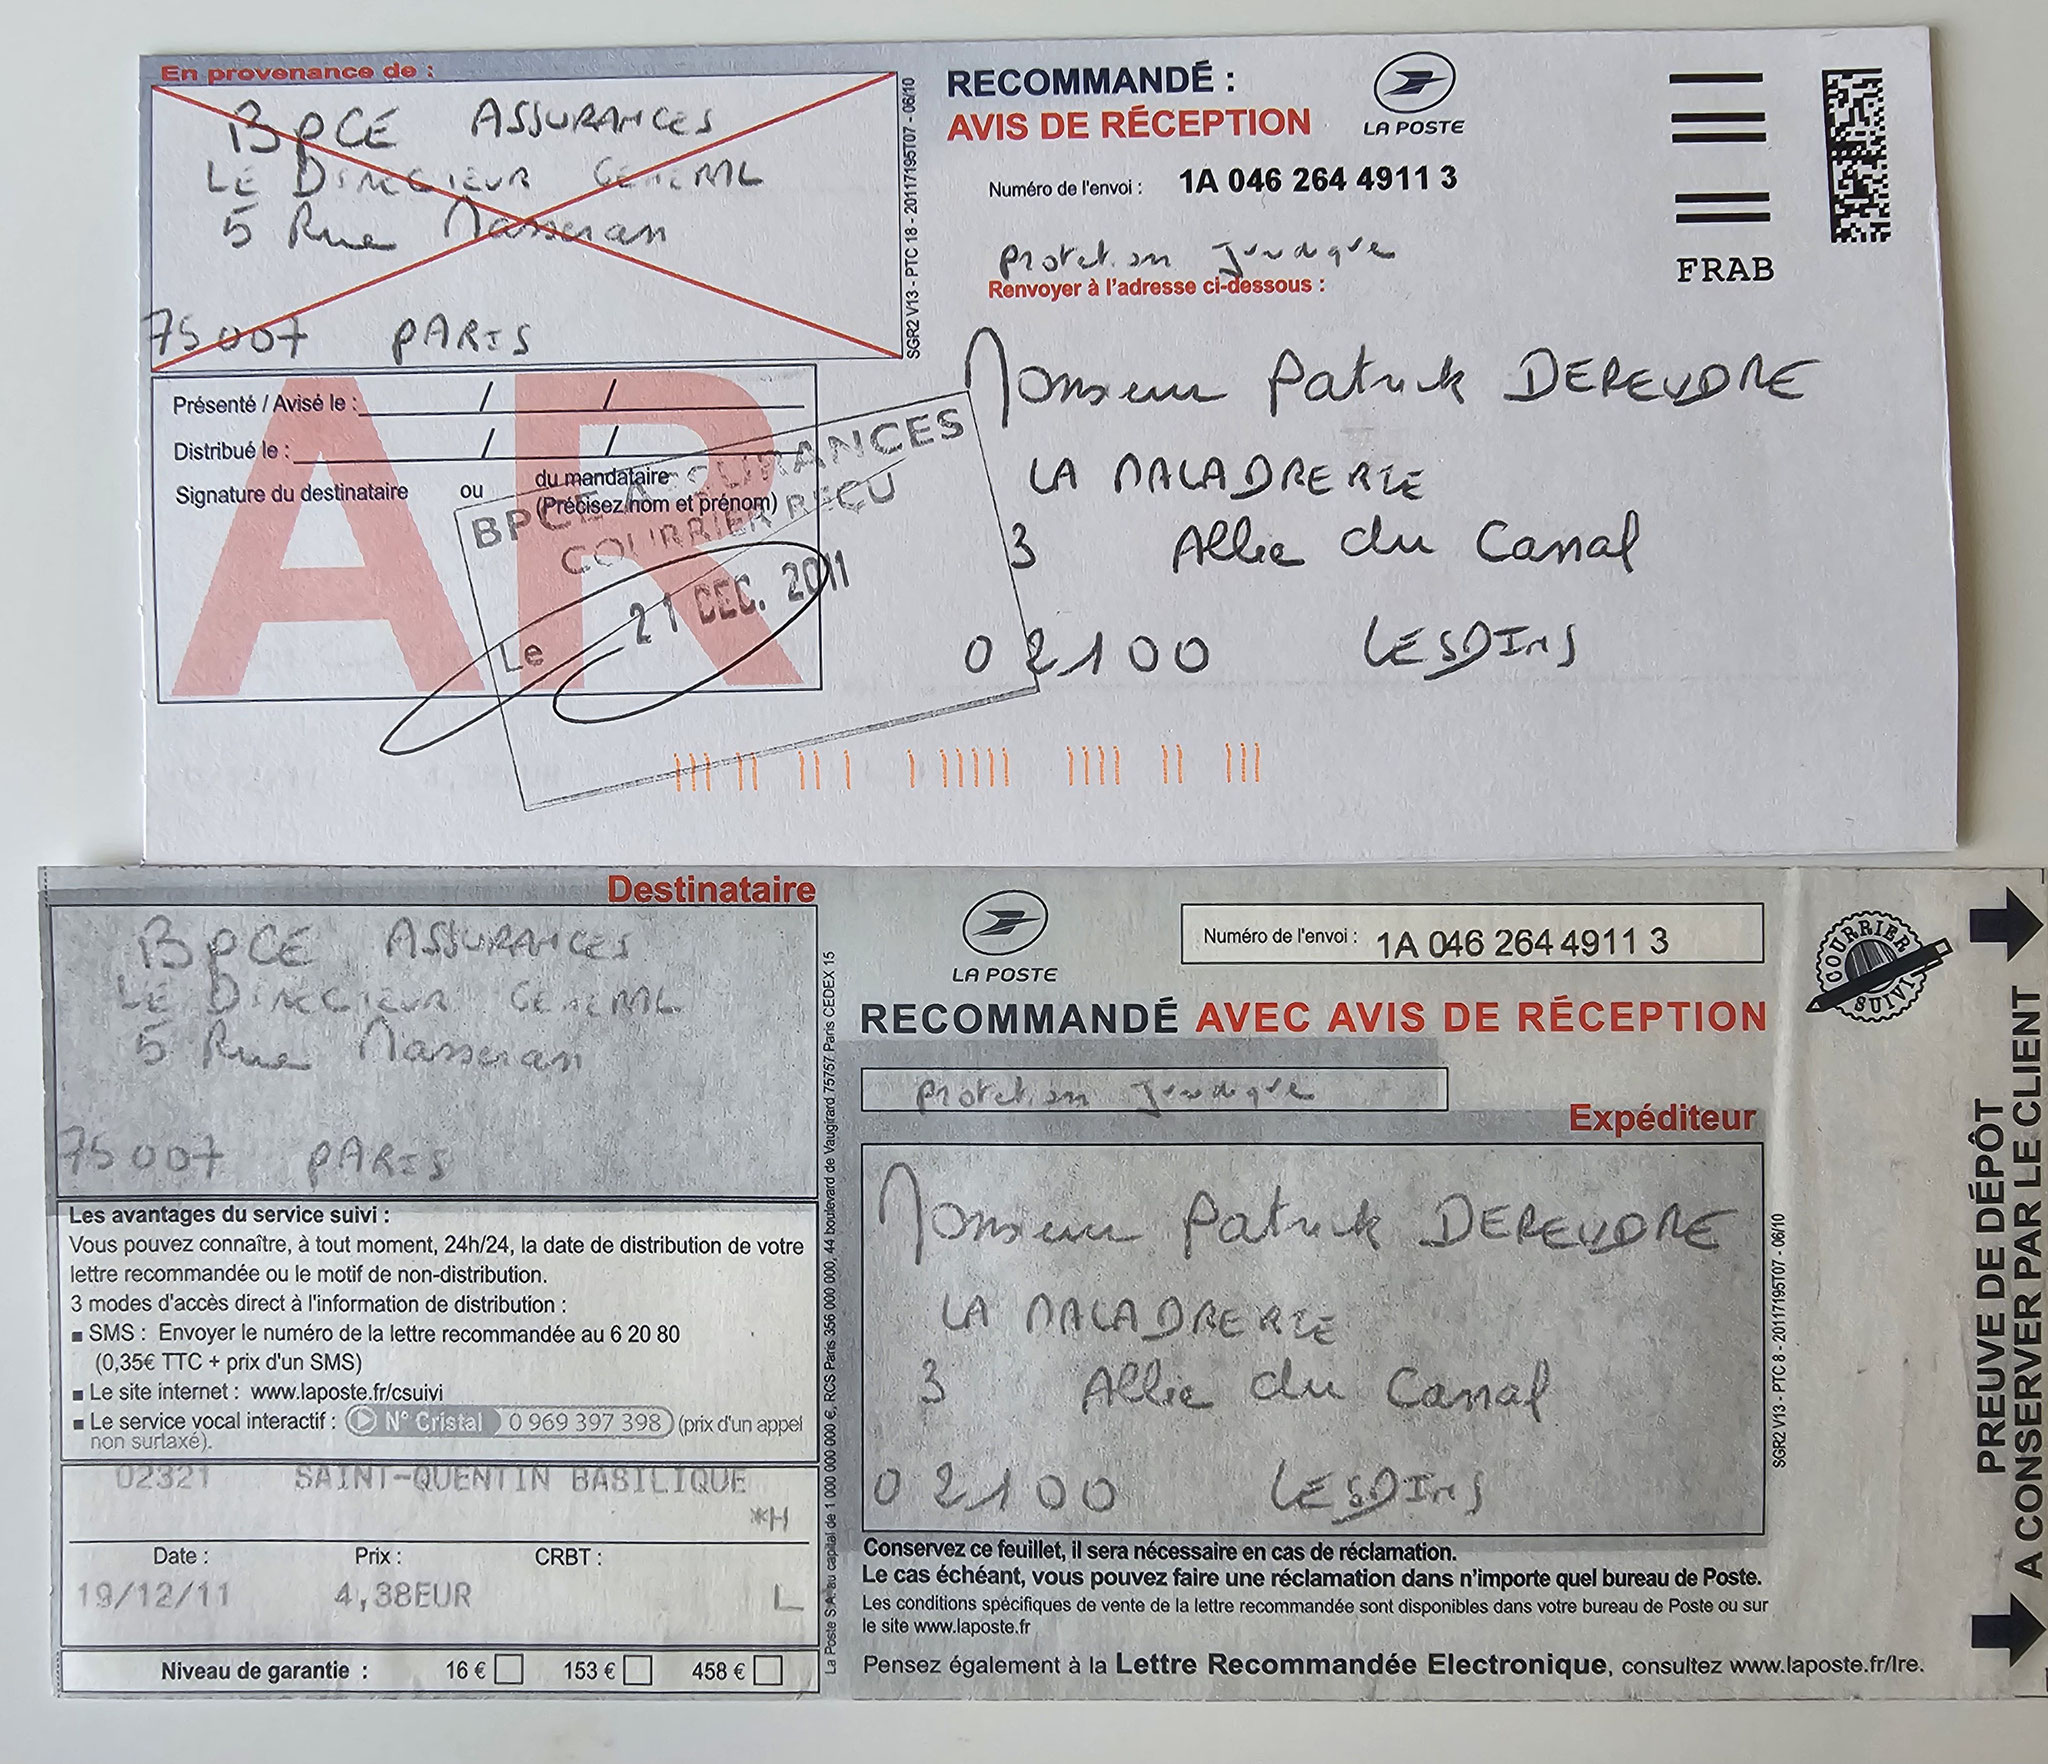 En provenance de :
BPCE ASSURANCES
LE DIRECTEUR GENERAL
5 Rue Masseran
75007 PARIS
SGR2 V13 - PTC 18 - 20117195T07 - 06/10
RECOMMANDÉ :
AVIS DE RÉCEPTION
LA POSTE
Numéro de l'envoi : 1A 046 264 4911 3
FRAB
Protection Juridique
Renvoyer à l'adresse ci-dessous :
Monsieur Patrick DEREUDRE
LA MALADRERIE
3 Allée du Canal
02100 LESDINS
AR
Présenté / Avisé le : / /
Distribué le : / /
Signature du destinataire ou du mandataire
(Précisez nom et prénom)
BPCE ASSURANCES
COURRIER REÇU
Le 21 DEC. 2011
Destinataire
BPCE ASSURANCES
LE DIRECTEUR GENERAL
5 Rue Masseran
75007 PARIS
LA POSTE
Numéro de l'envoi : 1A 046 264 4911 3
COURRIER SUIVI
RECOMMANDÉ AVEC AVIS DE RÉCEPTION
Protection Juridique
Expéditeur
Monsieur Patrick DEREUDRE
LA MALADRERIE
3 Allée du Canal
02100 LESDINS
Les avantages du service suivi :
Vous pouvez connaître, à tout moment, 24h/24, la date de distribution de votre
lettre recommandée ou le motif de non-distribution.
3 modes d'accès direct à l'information de distribution :
■ SMS : Envoyer le numéro de la lettre recommandée au 6 20 80
(0,35€ TTC + prix d'un SMS)
■ Le site internet : www.laposte.fr/csuivi
■ Le service vocal interactif : N° Cristal 0 969 397 398 (prix d'un appel
non surtaxé).
02321 SAINT-QUENTIN BASILIQUE
*H
Date : Prix : CRBT :
19/12/11 4,38EUR L
Niveau de garantie : 16 € 153 € 458 €
La Poste S.A. au capital de 1 000 000 000 €, RCS Paris 356 000 000, 44 boulevard de Vaugirard 75757 Paris CEDEX 15
SGR2 V13 - PTC 8 - 20117195T07 - 06/10
Conservez ce feuillet, il sera nécessaire en cas de réclamation.
Le cas échéant, vous pouvez faire une réclamation dans n'importe quel bureau de Poste.
Les conditions spécifiques de vente de la lettre recommandée sont disponibles dans votre bureau de Poste ou sur
le site www.laposte.fr
Pensez également à la Lettre Recommandée Electronique, consultez www.laposte.fr/lre.
PREUVE DE DÉPÔT
A CONSERVER PAR LE CLIENT